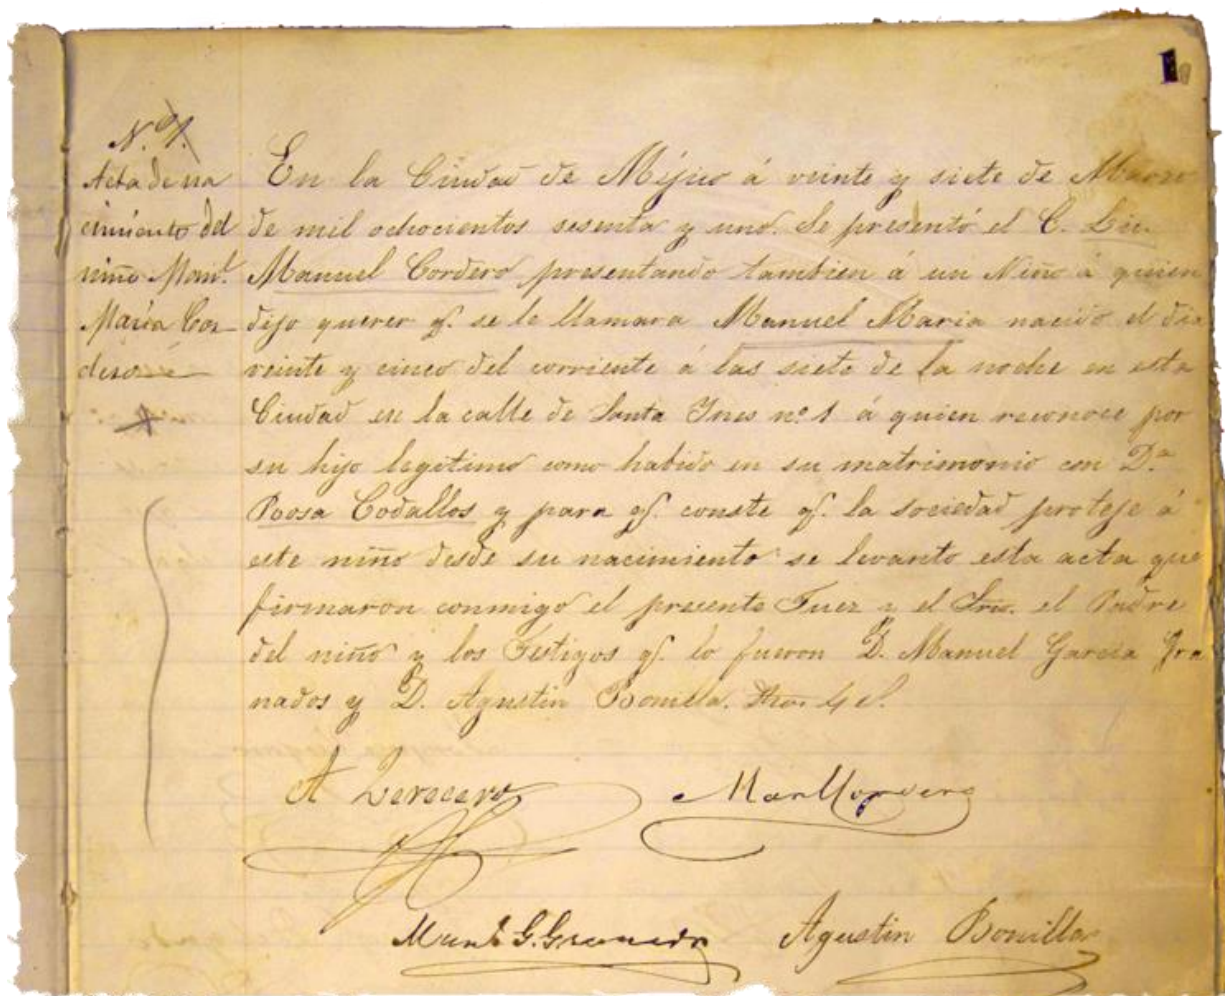 1
N.º 1.
Acta de na
cimiento del
niño Man.l
María Cor
dero
En la Ciudad de Méjico á veinte y siete de Marzo
de mil ochocientos sesenta y uno. Se presentó el C. Lic.
Manuel Cordero presentando tambien á un Niño á quien
dijo querer q.e se le llamara Manuel Maria nacido el dia
veinte y cinco del corriente á las siete de la noche en esta
Ciudad en la calle de Santa Ines nº 1 á quien reconoce por
su hijo legitimo como habido en su matrimonio con D.a
Roosa Codallos y para q.e conste q.e la sociedad proteje á
este niño desde su nacimiento se levanto esta acta que
firmaron conmigo el presente Juez y el Srio. el Padre
del niño y los Testigos q.e lo fueron D. Manuel Garcia Gra
nados y D. Agustin Bonilla.
A Zerecero
Man Cordero
Manl. G. Granados
Agustin Bonilla